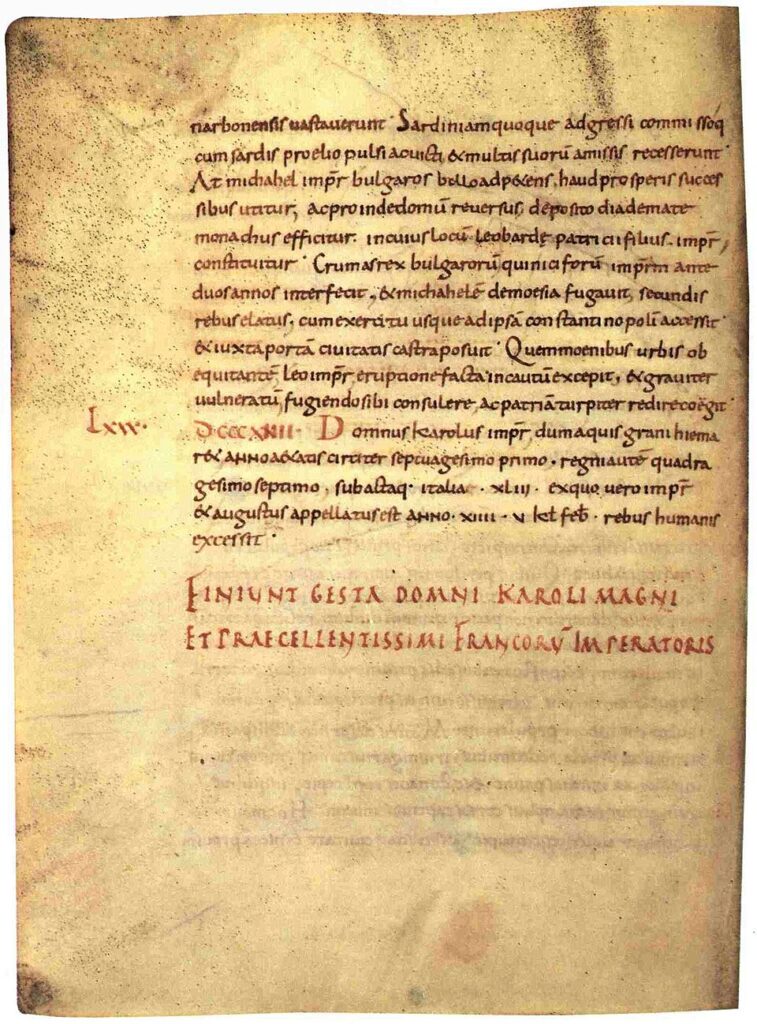 narbonensis vastaverunt · Sardiniam quoque adgressi commissoq
cum sardis proelio pulsi ac victi, & multis suorū amissis recesserunt ·
At michahel impr̄ bulgaros bello adpetens, haud prosperis succes
sibus utitur; ac proinde domū reversus, deposito diademate
monachus efficitur. in cuius locū leo bardę patricii filius, impr̄
constituitur · Crumas rex bulgarorū qui niciforū imprm̄ ante
duos annos interfecit, & michahelē de moesia fugavit, secundis
rebus elatus, cum exercitu usque ad ipsā constantinopolī accessit ·
& iuxta portā civitatis castra posuit · Quem moenibus urbis ob
equitantē leo impr̄ eruptione facta incautū excepit, & graviter
vulneratū fugiendo sibi consulere, ac patriā turpiter redire coëgit ·
Lxx.
DCCCXIIII · Domnus karolus impr̄ dum aquisgrani hiema
r& anno aetatis circiter septuagesimo primo · regni autē quadra
gesimo septimo, subactaeq· italiae · xliii · ex quo vero impr̄
& augustus appellatus est anno · xiiii · v kł feƀ · rebus humanis
excessit ·
FINIUNT GESTA DOMNI KAROLI MAGNI
ET PRAECELLENTISSIMI FRANCORŪ IMPERATORIS